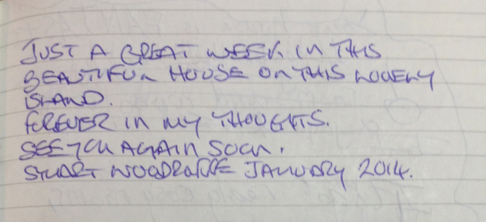 JUST A GREAT WEEK IN THIS
BEAUTIFUL HOUSE ON THIS LOVELY
ISLAND.
FOREVER IN MY THOUGHTS.
SEE YOU AGAIN SOON.
STUART WOODROFFE JANUARY 2014.